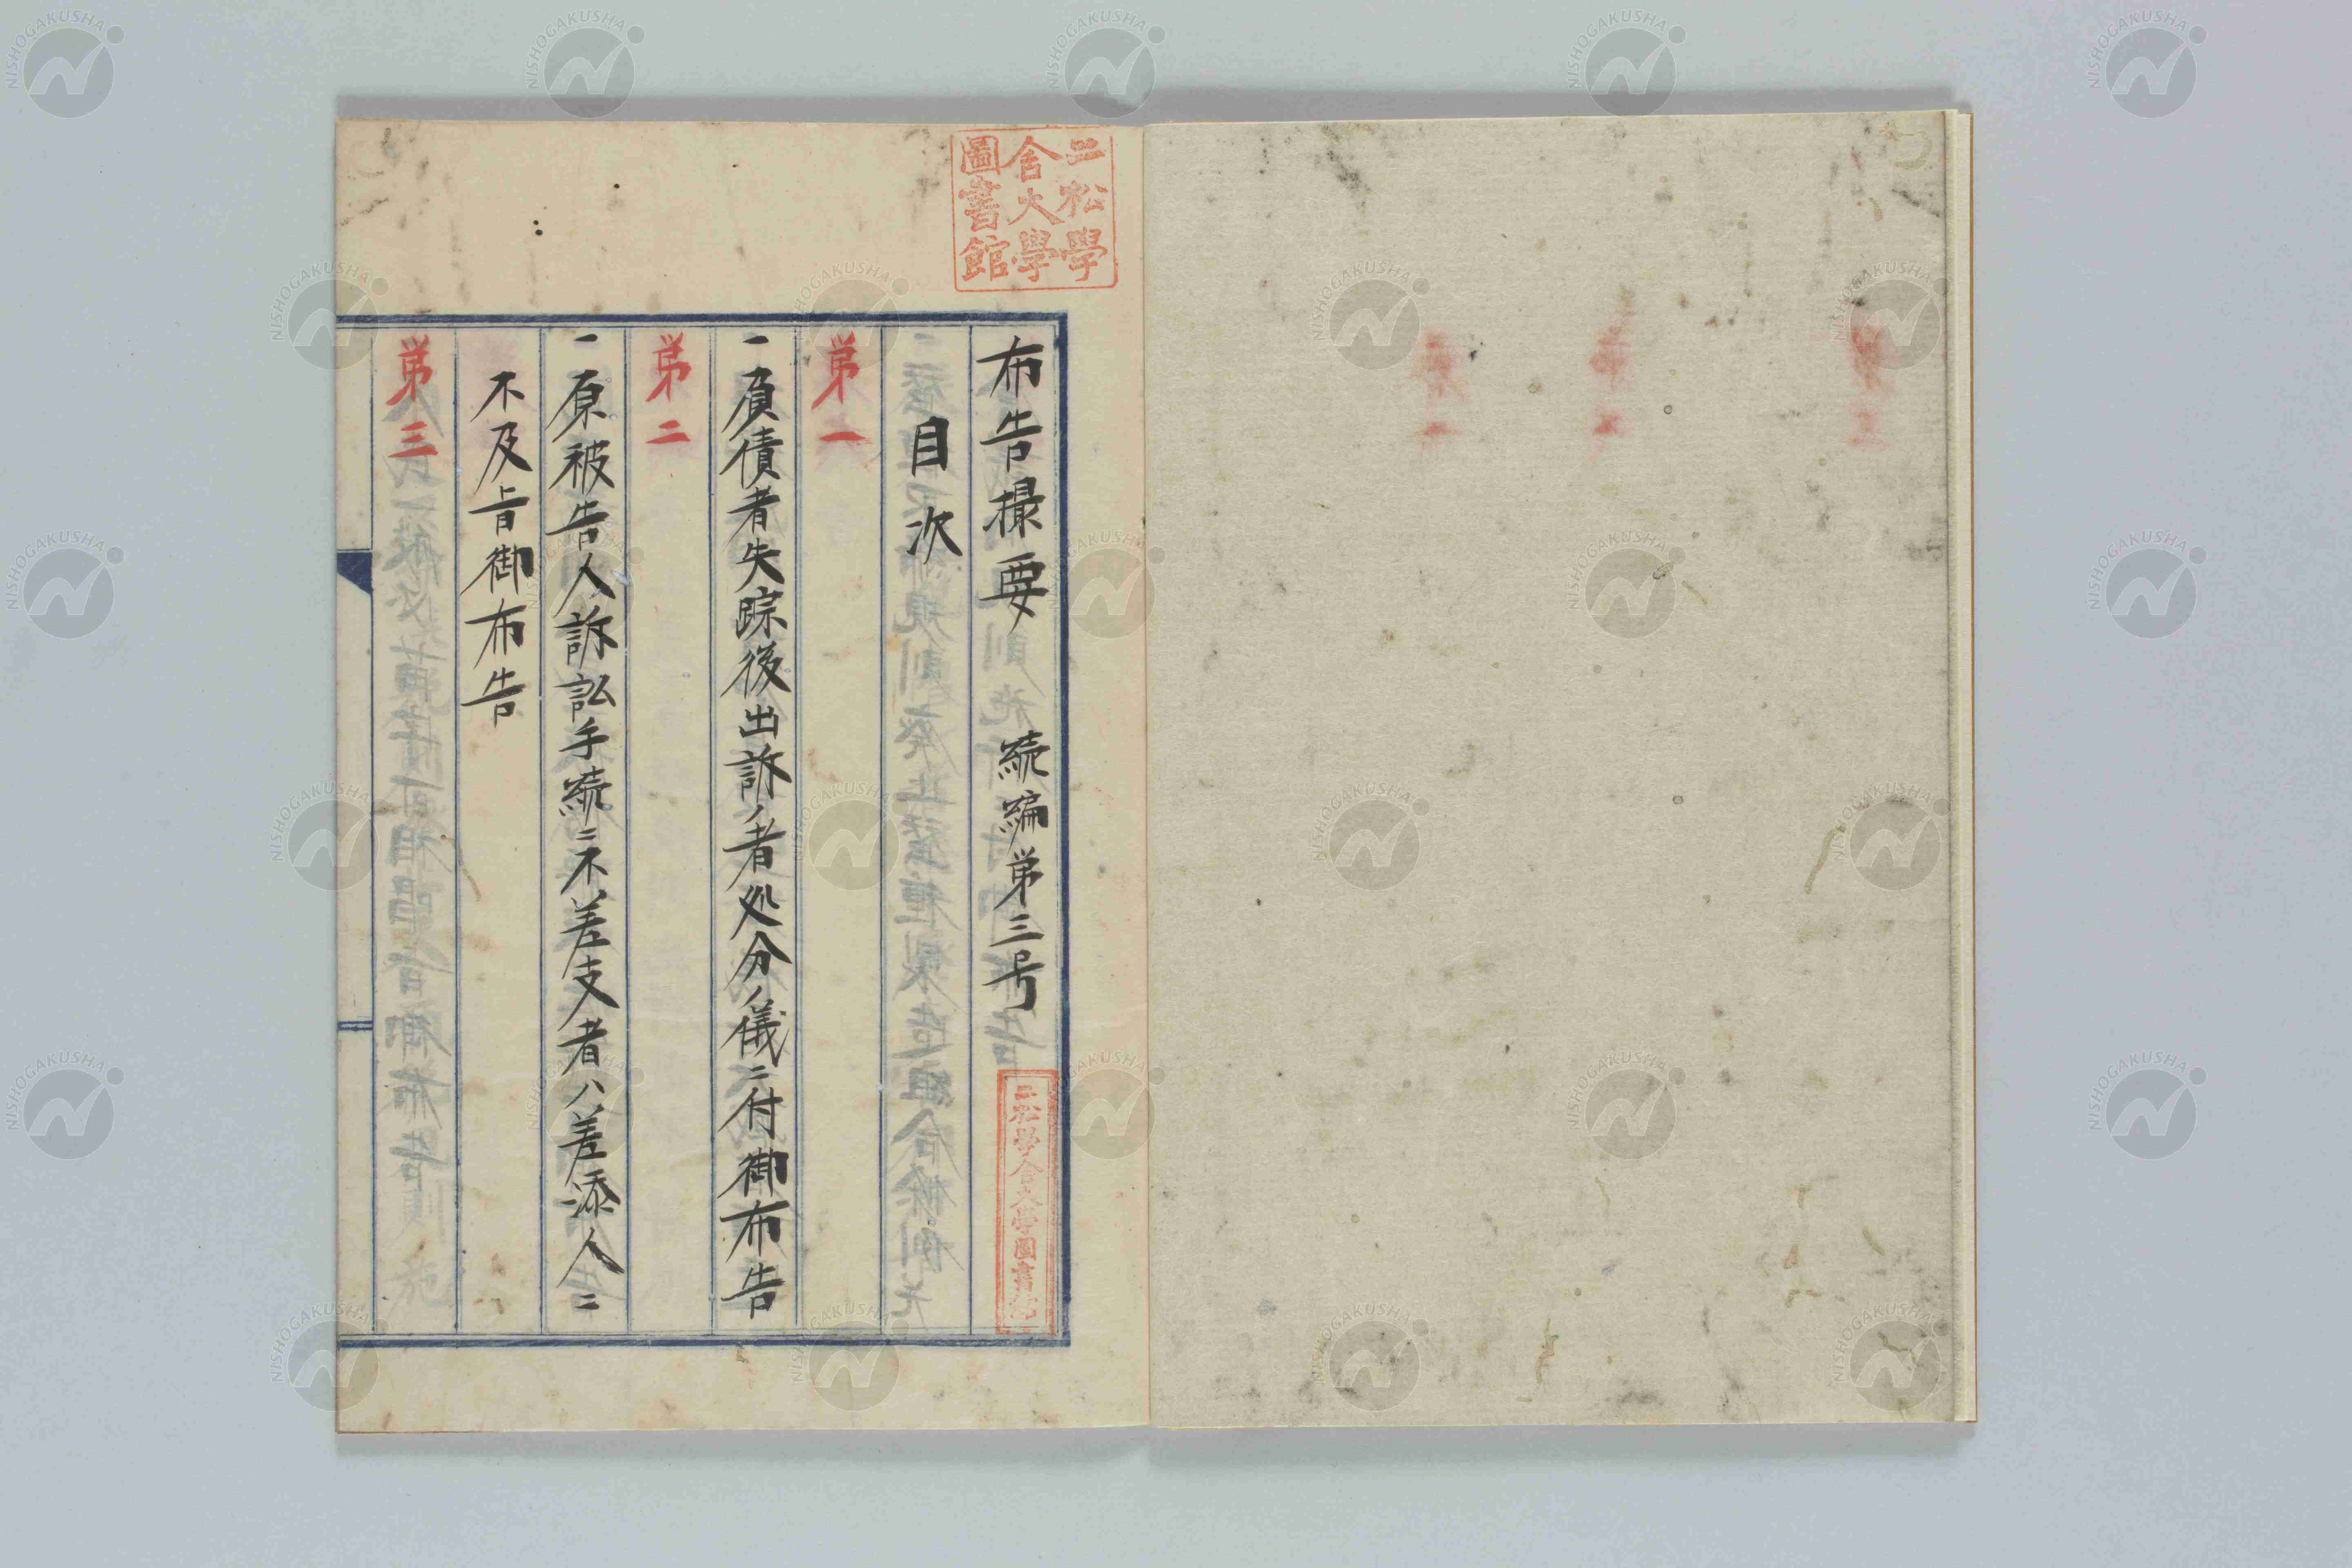 二松學
舎大學
圖書館
布告撮要 続編第三号
二松學舎大學圖書館
目次
第一
一負債者失踪後出訴ノ者処分ノ儀ニ付御布告
第二
一原被告人訴訟手続ニ不差支者ハ差添人ニ
不及旨御布告
第三
NISHOGAKUSHA